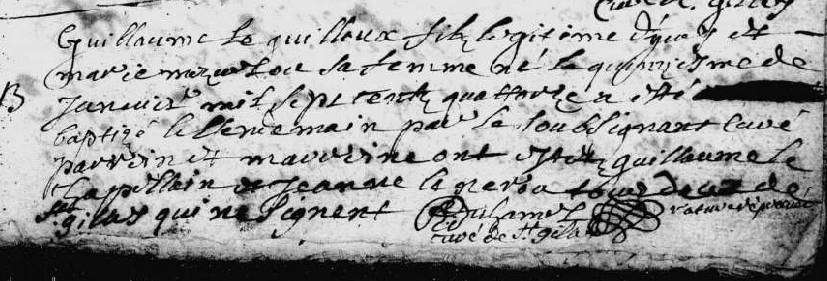 curé de st gilas
Guillaume le guilloux fils legitime d'yves et
marie sa femme né le quinziesme de
B Janvier mil sept cents quattorze a esté
baptizé le lendemain par le soubsignant curé
parrein et marreine ont estés guillaume le
chapellein et Jeanne le tous deux de
st gilas qui ne signent
curé de st gilas rature approuvé